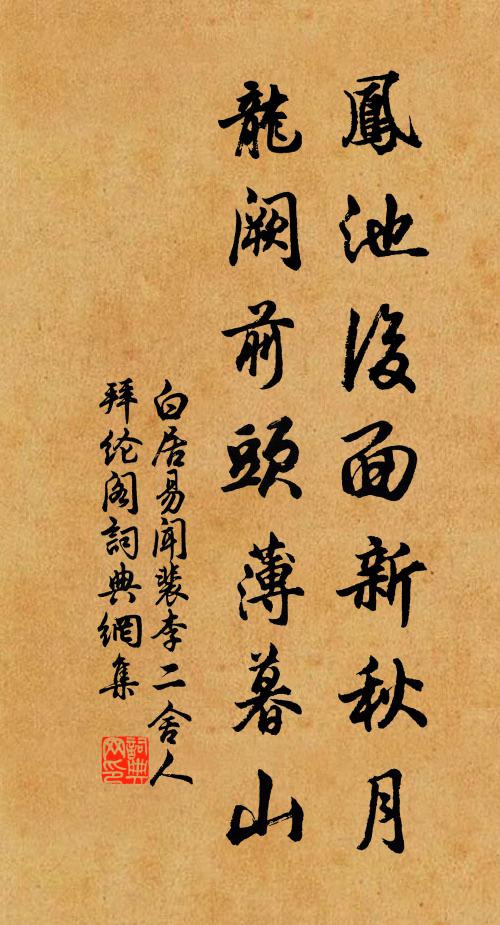 鳳池後面新秋月
龍闕前頭薄暮山
白居易聞裴李二舍人
拜纶阁詞典網集
詞典网印